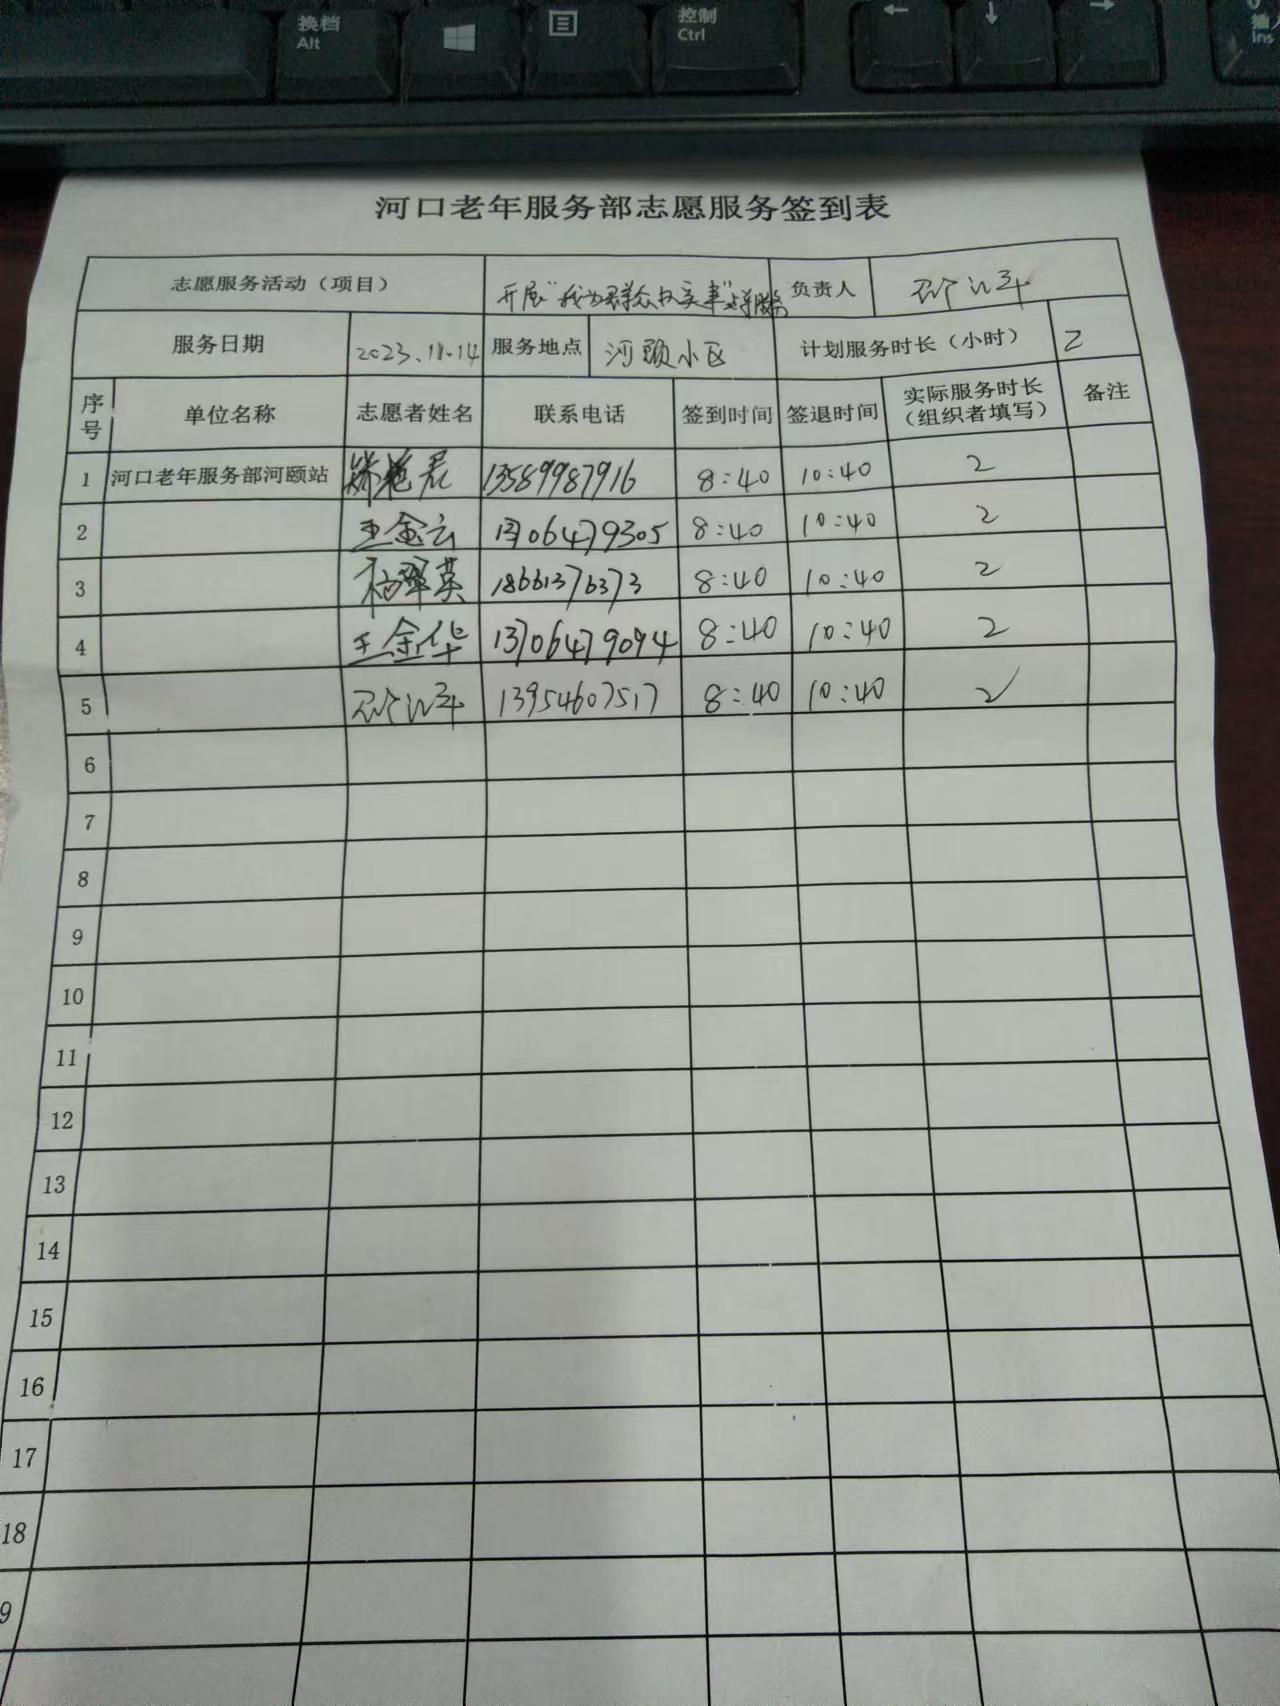 换档
Alt
控制
Ctrl
←
↓
→
Ins
河口老年服务部志愿服务签到表
志愿服务活动（项目） 开展“我为群众办实事” 负责人
服务日期 2023.11.14 服务地点 河颐小区 计划服务时长（小时） 2
序号 单位名称 志愿者姓名 联系电话 签到时间 签退时间 实际服务时长（组织者填写） 备注
1 河口老年服务部河颐站 13589987916 8:40 10:40 2
2 王金云 13706479305 8:40 10:40 2
3 杨翠英 18661376373 8:40 10:40 2
4 王金华 13706479094 8:40 10:40 2
5 13954607517 8:40 10:40 2
6
7
8
9
10
11
12
13
14
15
16
17
18
9